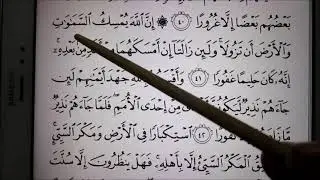 بَعْضُهُم بَعْضًا إِلَّا غُرُورًا ٤٠ ۞ إِنَّ ٱللَّهَ يُمْسِكُ ٱلسَّمَٰوَٰتِ
وَٱلْأَرْضَ أَن تَزُولَا ۚ وَلَئِن زَالَتَآ إِنْ أَمْسَكَهُمَا مِنْ بَعْدِهِۦٓ ۚ
إِنَّهُۥ كَانَ حَلِيمًا غَفُورًا ٤١ وَأَقْسَمُوا۟ بِٱللَّهِ جَهْدَ أَيْمَٰنِهِمْ لَئِن
جَآءَهُمْ نَذِيرٌ لَّيَكُونُنَّ مِنْ إِحْدَى ٱلْأُمَمِ ۖ فَلَمَّا جَآءَهُمْ نَذِيرٌ
مَّا زَادَهُمْ نُفُورًا ٤٢ ٱسْتِكْبَارًا فِى ٱلْأَرْضِ وَمَكْرَ ٱلسَّيِّئِ ۚ
ٱلْمَكْرُ ٱلسَّيِّئُ إِلَّا بِأَهْلِهِۦ ۚ فَهَلْ يَنظُرُونَ إِلَّا سُنَّتَ